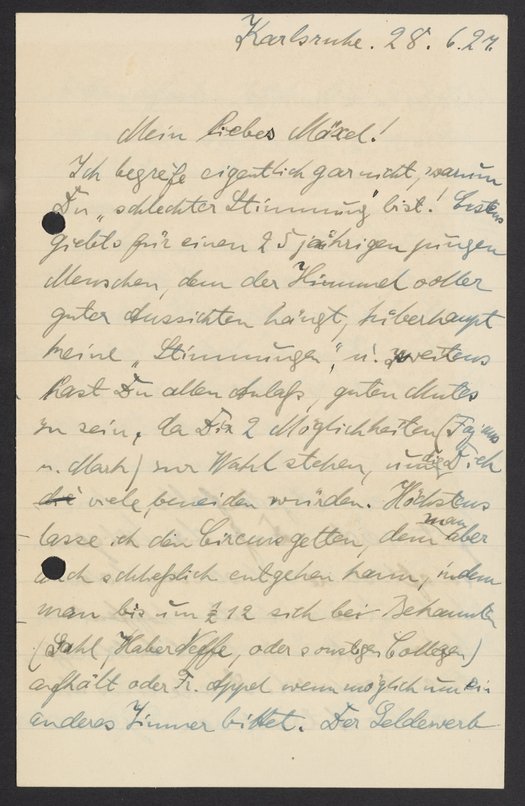 Karlsruhe. 28. 6. 27.
Mein liebes Mäxel!
Ich begreife eigentlich gar nicht, warum
Du „schlechter Stimmung" bist! Erstens
giebts für einen 25 jährigen jungen
Menschen, dem der Himmel voller
guter Aussichten hängt, überhaupt
keine „Stimmungen", u. zweitens
hast Du allen Anlaß, guten Mutes
zu sein, da Dir 2 Möglichkeiten
u. Mark) zur Wahl stehen, um die Dich
viele beneiden würden. Höchstens
lasse ich den Circus gelten, dem man aber
auch schließlich entgehen kann, indem
man bis um ½ 12 sich bei Bekannten
(Dahl, Haber Neffe, oder sonstgen Collegen)
aufhält oder Fr. Appel wenn möglich um ein
anderes Zimmer bittet. Der Gelderwerb